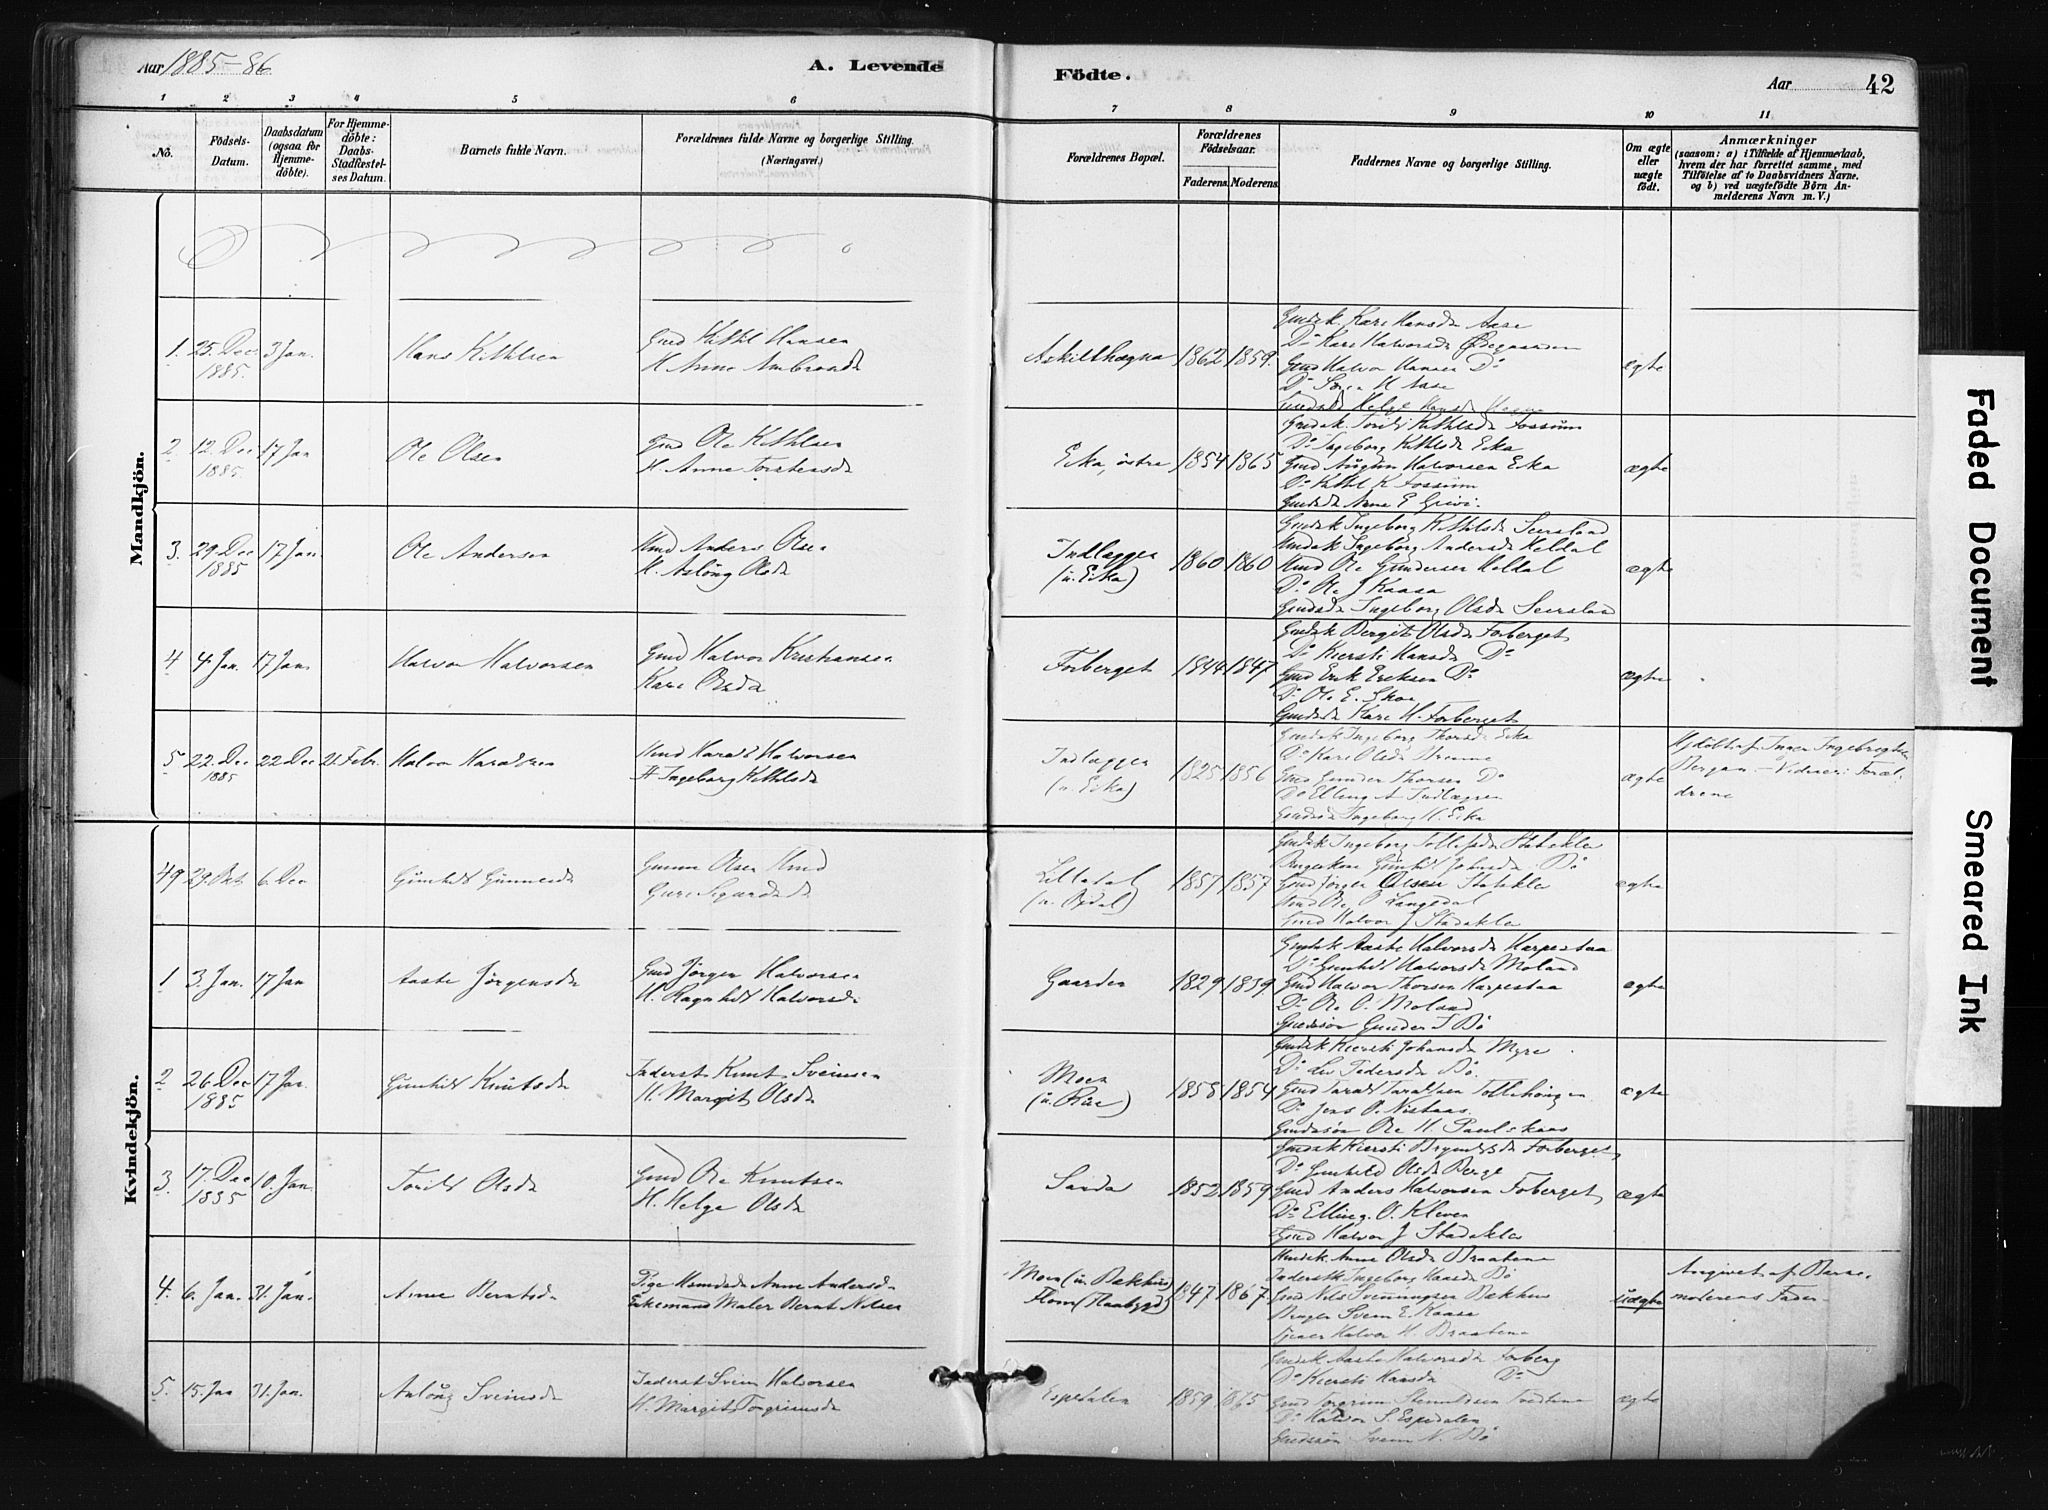 Aar 1885-86
A. Levende
Födte.
Aar
42
1 2 3 4 5 6 7 8 9 10 11
No.
Födsels-
Datum.
Daabsdatum
(ogsaa for
Hjemme-
döbte).
For Hjemme-
döbte:
Daabs-
Stadfæstel-
ses Datum.
Barnets fulde Navn.
Forældrenes fulde Navne og borgerlige Stilling.
(Næringsvei.)
Forældrenes Bopæl.
Forældrenes
Födselsaar.
Faderens. Moderens.
Faddernes Navne og borgerlige Stilling.
Om ægte
eller
uægte
födt.
Anmærkninger
(saasom: a) i Tilfælde af Hjemmedaab,
hvem der har forrettet samme, med
Tilföielse af to Daabsvidners Navne,
og b) ved uægtefödte Börn An-
melderens Navn m. V.)
Mandkjön.
1. 25. Dec. 1885. 3 Jan. Hans Kittilsen
Gmd Kittil Hansen
H. Anne
1862 1859.
Gmdsk. Kari Hansd. Aase
Do Kari Halvorsd.
Gmd Halvor Hansen Do
Do H Aase
ægte
2 12. Dec 1885. 17 Jan Ole Olsen
Gmd Ole Kittilsen
H. Anne Torstensd
Eika, östre 1854 1865
Gmdsk. Torild Kittilsd Fossum
Do Ingeborg Kittilsd Eika
Gmd Halvorsen Eika
Do Kittil K Fossum
Gmdsd. Anne E Grivi.
ægte
3. 29. Dec 1885 17 Jan. Ole Andersen
Hmd Anders Olsen
H. Aslöug Olsd
Indlæggen
(u. Eika)
1860 1860
Gmdsk Ingeborg Kittilsd
Hmdsk Ingeborg Andersd Heldal
Hmd Ole Gundersen Heldal
Do Ole J Kaasa
Gmdsd Ingeborg Olsd
ægte
4 4. Jan. 17 Jan. Halvor Halvorsen
Gmd Halvor Kristiansen
Kari Olsd
Forberget 1844 1847
Gmdsk Bergit Olsd Forberget
Do Kiersti Hansd Do
Gmd Erik Eriksen Do
Do Ole E.
Gmdsd Kari H. Forberget
ægte
5 22. Dec 1885 22 Dec 21 Febr. Halvor Haraldsen
Hmd Harald Halvorsen
H Ingeborg Kittilsd
Indlæggen
(u. Eika)
1825 1856
Gmdsk Ingeborg Thorsd Eika
Do Kari Olsd
Gmd Gunder Thorsen Do
Do Elling A Indlægen
Gmdsd Ingeborg H. Eika
ægte
Hjdöbt af Inger
Bergan. - Vidner: Foræl-
drene
Kvindekjön.
49 29. Okt 6. Dec Gunhild Gunnersd
Gunner Olsen Hmd
Guro Sigurdsd
Lilledal
1857 1857
Gmdsk Ingeborg Stadskleiv
Gunhild Johnsd Bö
Gmd Jörgen Olsen Stadskleiv
Hmd Ole Langedal
Gmd Halvor J Stadskleiv
ægte
1 3. Jan. 17 Jan Aaste Jörgensd
Gmd Jörgen Halvorsen
H. Ragnhild Halvorsd
Gaarden 1829 1839
Gmdsk Aaste Halvorsd Harpestaa
Do Gunhild Halvorsd Moland
Gmd Halvor Thorsen Harpestaa
Do Ole O. Moland
Gmdssön Gunder T Bö
ægte
2 26. Dec 1885 17 Jan. Gunhild Knutsd
Inderst Knut Sveinsen
H. Margit Olsd
Moen
(u. Rue)
1858 1854
Gmdsk Kiersti Johansd Myre
Do Liv Pedersd Bö
Gmd Tarald Taraldsen
Do Jens O. Nistaas
Gmdssön Ole H.
ægte
3. 17. Dec 1885 10. Jan. Torild Olsd
Gmd Ole Knutsen
H. Helge Olsd
Sanda 1852 1859
Gmdsk Kiersti Forberget
Do Gunhild Olsd Berge
Gmd Anders Halvorsen Foberget
Do Elling O. Kleven
Gmd Halvor J Stadskleiv
ægte
4. 6. Jan. 31. Jan. Anne Berntsd
Pige Anne Andersd
Enkemand Maler Bernt Nilsen
Moen (u. Bækhus)
Flom (Flaabygd)
1847 1867
Hmdsk Anne Olsd Braatene
Ingeborg Hansd Bö
Gmd Nils Svenningsen Bækhus
Svein E. Kaasa
Halvor H. Braatene
uægte
Angivet af Barne-
moderens Fader
5. 15. Jan 31. Jan. Aslöug Sveinsd
Inderst Svein Halvorsen
H. Margit Torgrimsd
Espedalen 1859. 1865
Gmdsk Aaste Halvorsd Forberg
Do Kiersti Hansd Do
Gmd Torgrim
Do Halvor S. Espedalen
Gmdssön Svein N. Bö
ægte
Faded Document
Smeared Ink